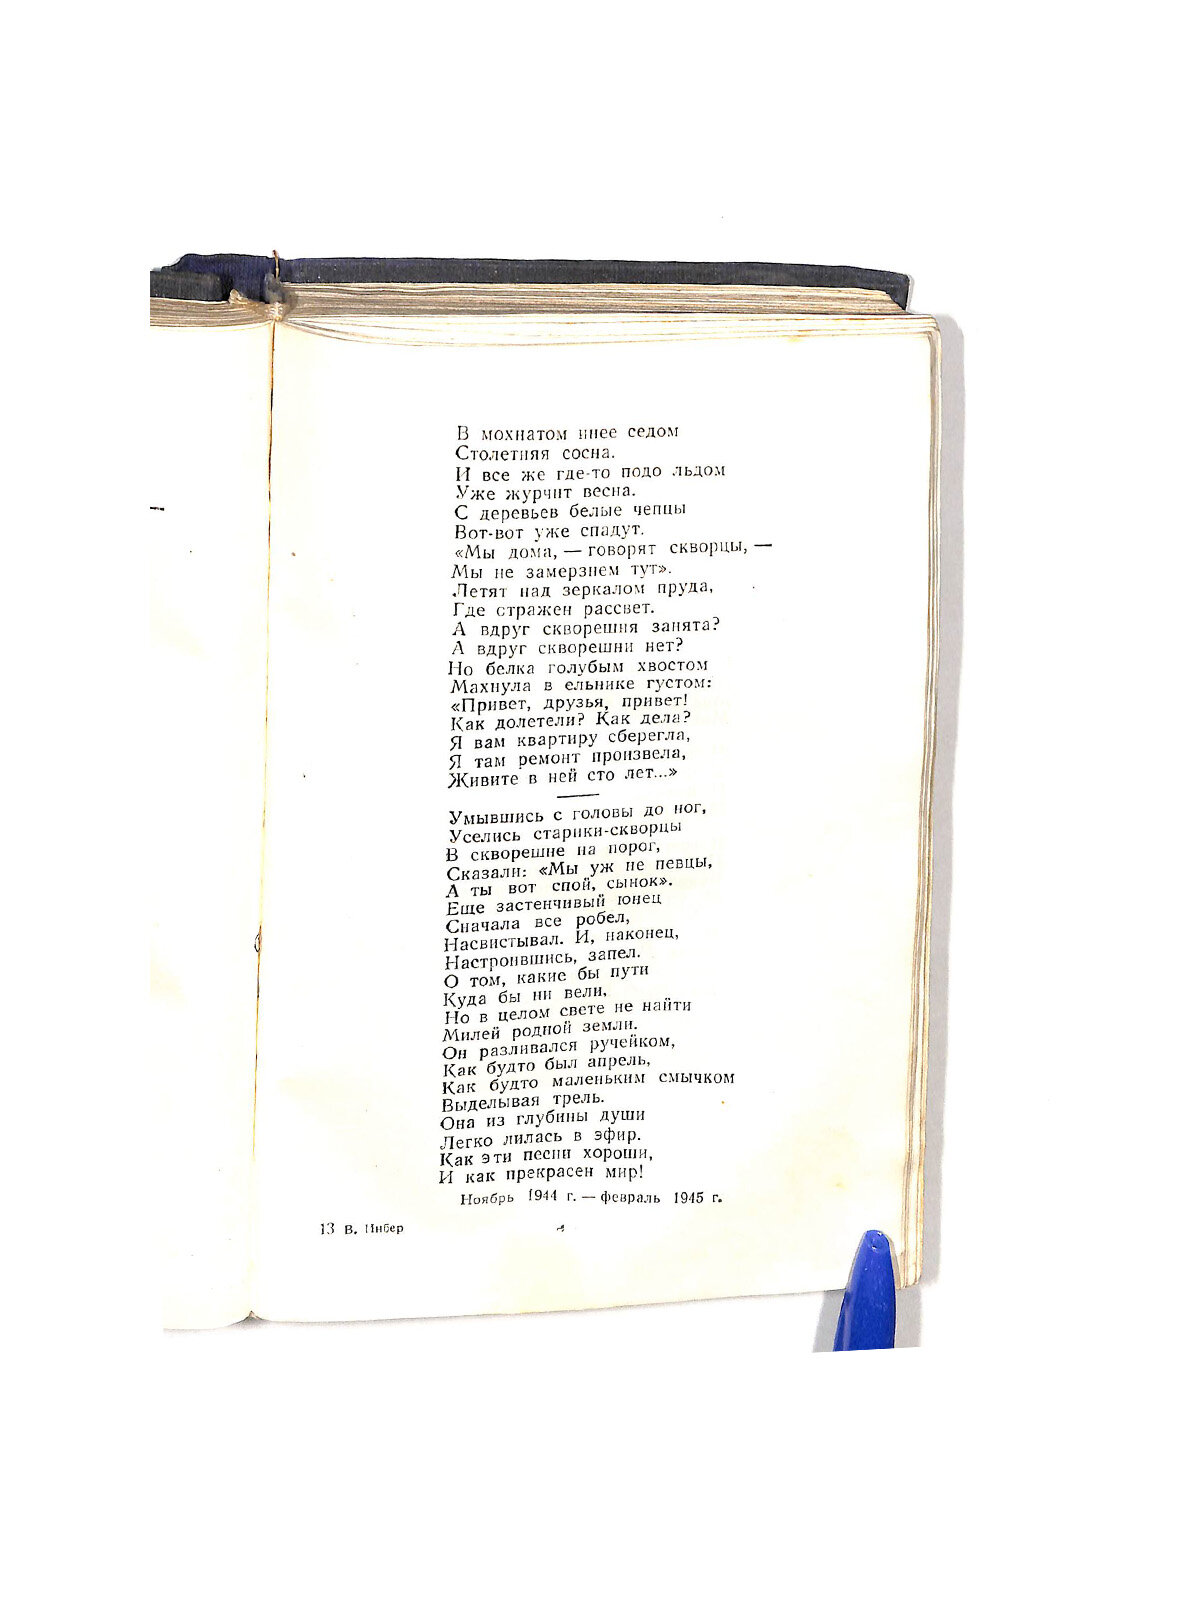 В мохнатом инее седом
Столетняя сосна.
И все же где-то подо льдом
Уже журчит весна.
С деревьев белые чепцы
Вот-вот уже спадут.
«Мы дома, — говорят скворцы, —
Мы не замерзнем тут».
Летят над зеркалом пруда,
Где отражен рассвет.
А вдруг скворешня занята?
А вдруг скворешни нет?
Но белка голубым хвостом
Махнула в ельнике густом:
«Привет, друзья, привет!
Как долетели? Как дела?
Я вам квартиру сберегла,
Я там ремонт произвела,
Живите в ней сто лет...»
Умывшись с головы до ног,
Уселись старики-скворцы
В скворешне на порог,
Сказали: «Мы уж не певцы,
А ты вот спой, сынок».
Еще застенчивый юнец
Сначала все робел,
Насвистывал. И, наконец,
Настроившись, запел.
О том, какие бы пути
Куда бы ни вели,
Но в целом свете не найти
Милей родной земли.
Он разливался ручейком,
Как будто был апрель,
Как будто маленьким смычком
Выделывая трель.
Она из глубины души
Легко лилась в эфир.
Как эти песни хороши,
И как прекрасен мир!
Ноябрь 1944 г. — февраль 1945 г.
13 В. Инбер